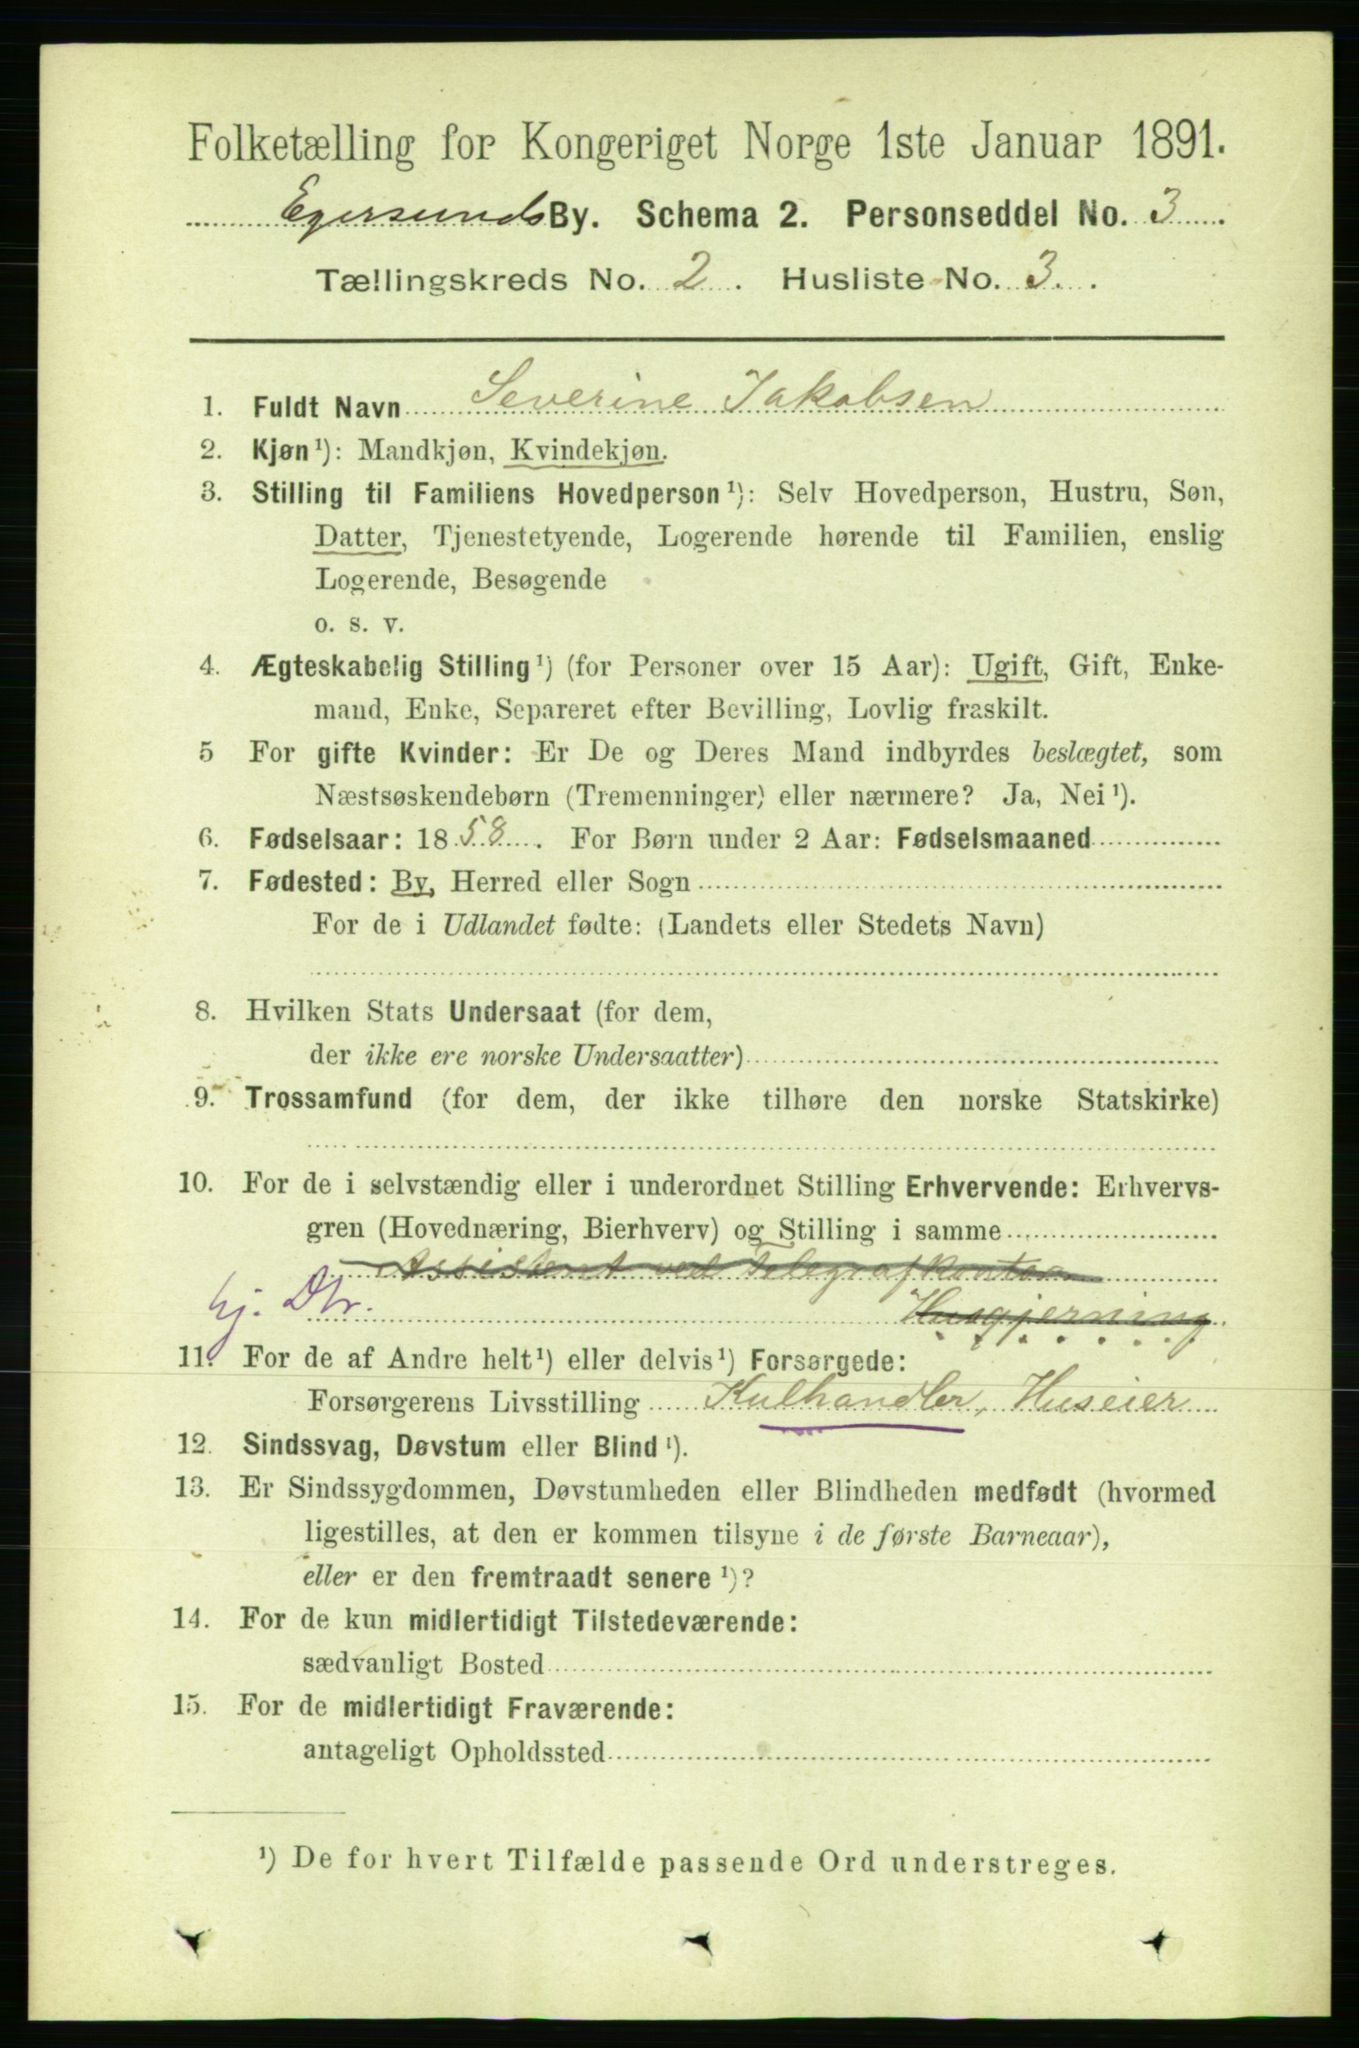 Folketælling for Kongeriget Norge 1ste Januar 1891.
Egersunds By. Schema 2. Personseddel No. 3
Tællingskreds No. 2. Husliste No. 3.
1. Fuldt Navn Severine Jakobsen
2. Kjøn¹): Mandkjøn, Kvindekjøn.
3. Stilling til Familiens Hovedperson¹): Selv Hovedperson, Hustru, Søn,
Datter, Tjenestetyende, Logerende hørende til Familien, enslig
Logerende, Besøgende
o. s. v.
4. Ægteskabelig Stilling¹) (for Personer over 15 Aar): Ugift, Gift, Enke-
mand, Enke, Separeret efter Bevilling, Lovlig fraskilt.
5 For gifte Kvinder: Er De og Deres Mand indbyrdes beslægtet, som
Næstsøskendebørn (Tremenninger) eller nærmere? Ja, Nei¹).
6. Fødselsaar: 1858. For Børn under 2 Aar: Fødselsmaaned
7. Fødested: By, Herred eller Sogn
For de i Udlandet fødte: (Landets eller Stedets Navn)
8. Hvilken Stats Undersaat (for dem,
der ikke ere norske Undersaatter)
9. Trossamfund (for dem, der ikke tilhøre den norske Statskirke)
10. For de i selvstændig eller i underordnet Stilling Erhvervende: Erhvervs-
gren (Hovednæring, Bierhverv) og Stilling i samme
Assistent ved Telegrafkontor
hj. Dtr. Husgjerning
11. For de af Andre helt¹) eller delvis¹) Forsørgede:
Forsørgerens Livsstilling Kulhandler, Huseier
12. Sindssvag, Døvstum eller Blind¹).
13. Er Sindssygdommen, Døvstumheden eller Blindheden medfødt (hvormed
ligestilles, at den er kommen tilsyne i de første Barneaar),
eller er den fremtraadt senere¹)?
14. For de kun midlertidigt Tilstedeværende:
sædvanligt Bosted
15. For de midlertidigt Fraværende:
antageligt Opholdssted
¹) De for hvert Tilfælde passende Ord understreges.